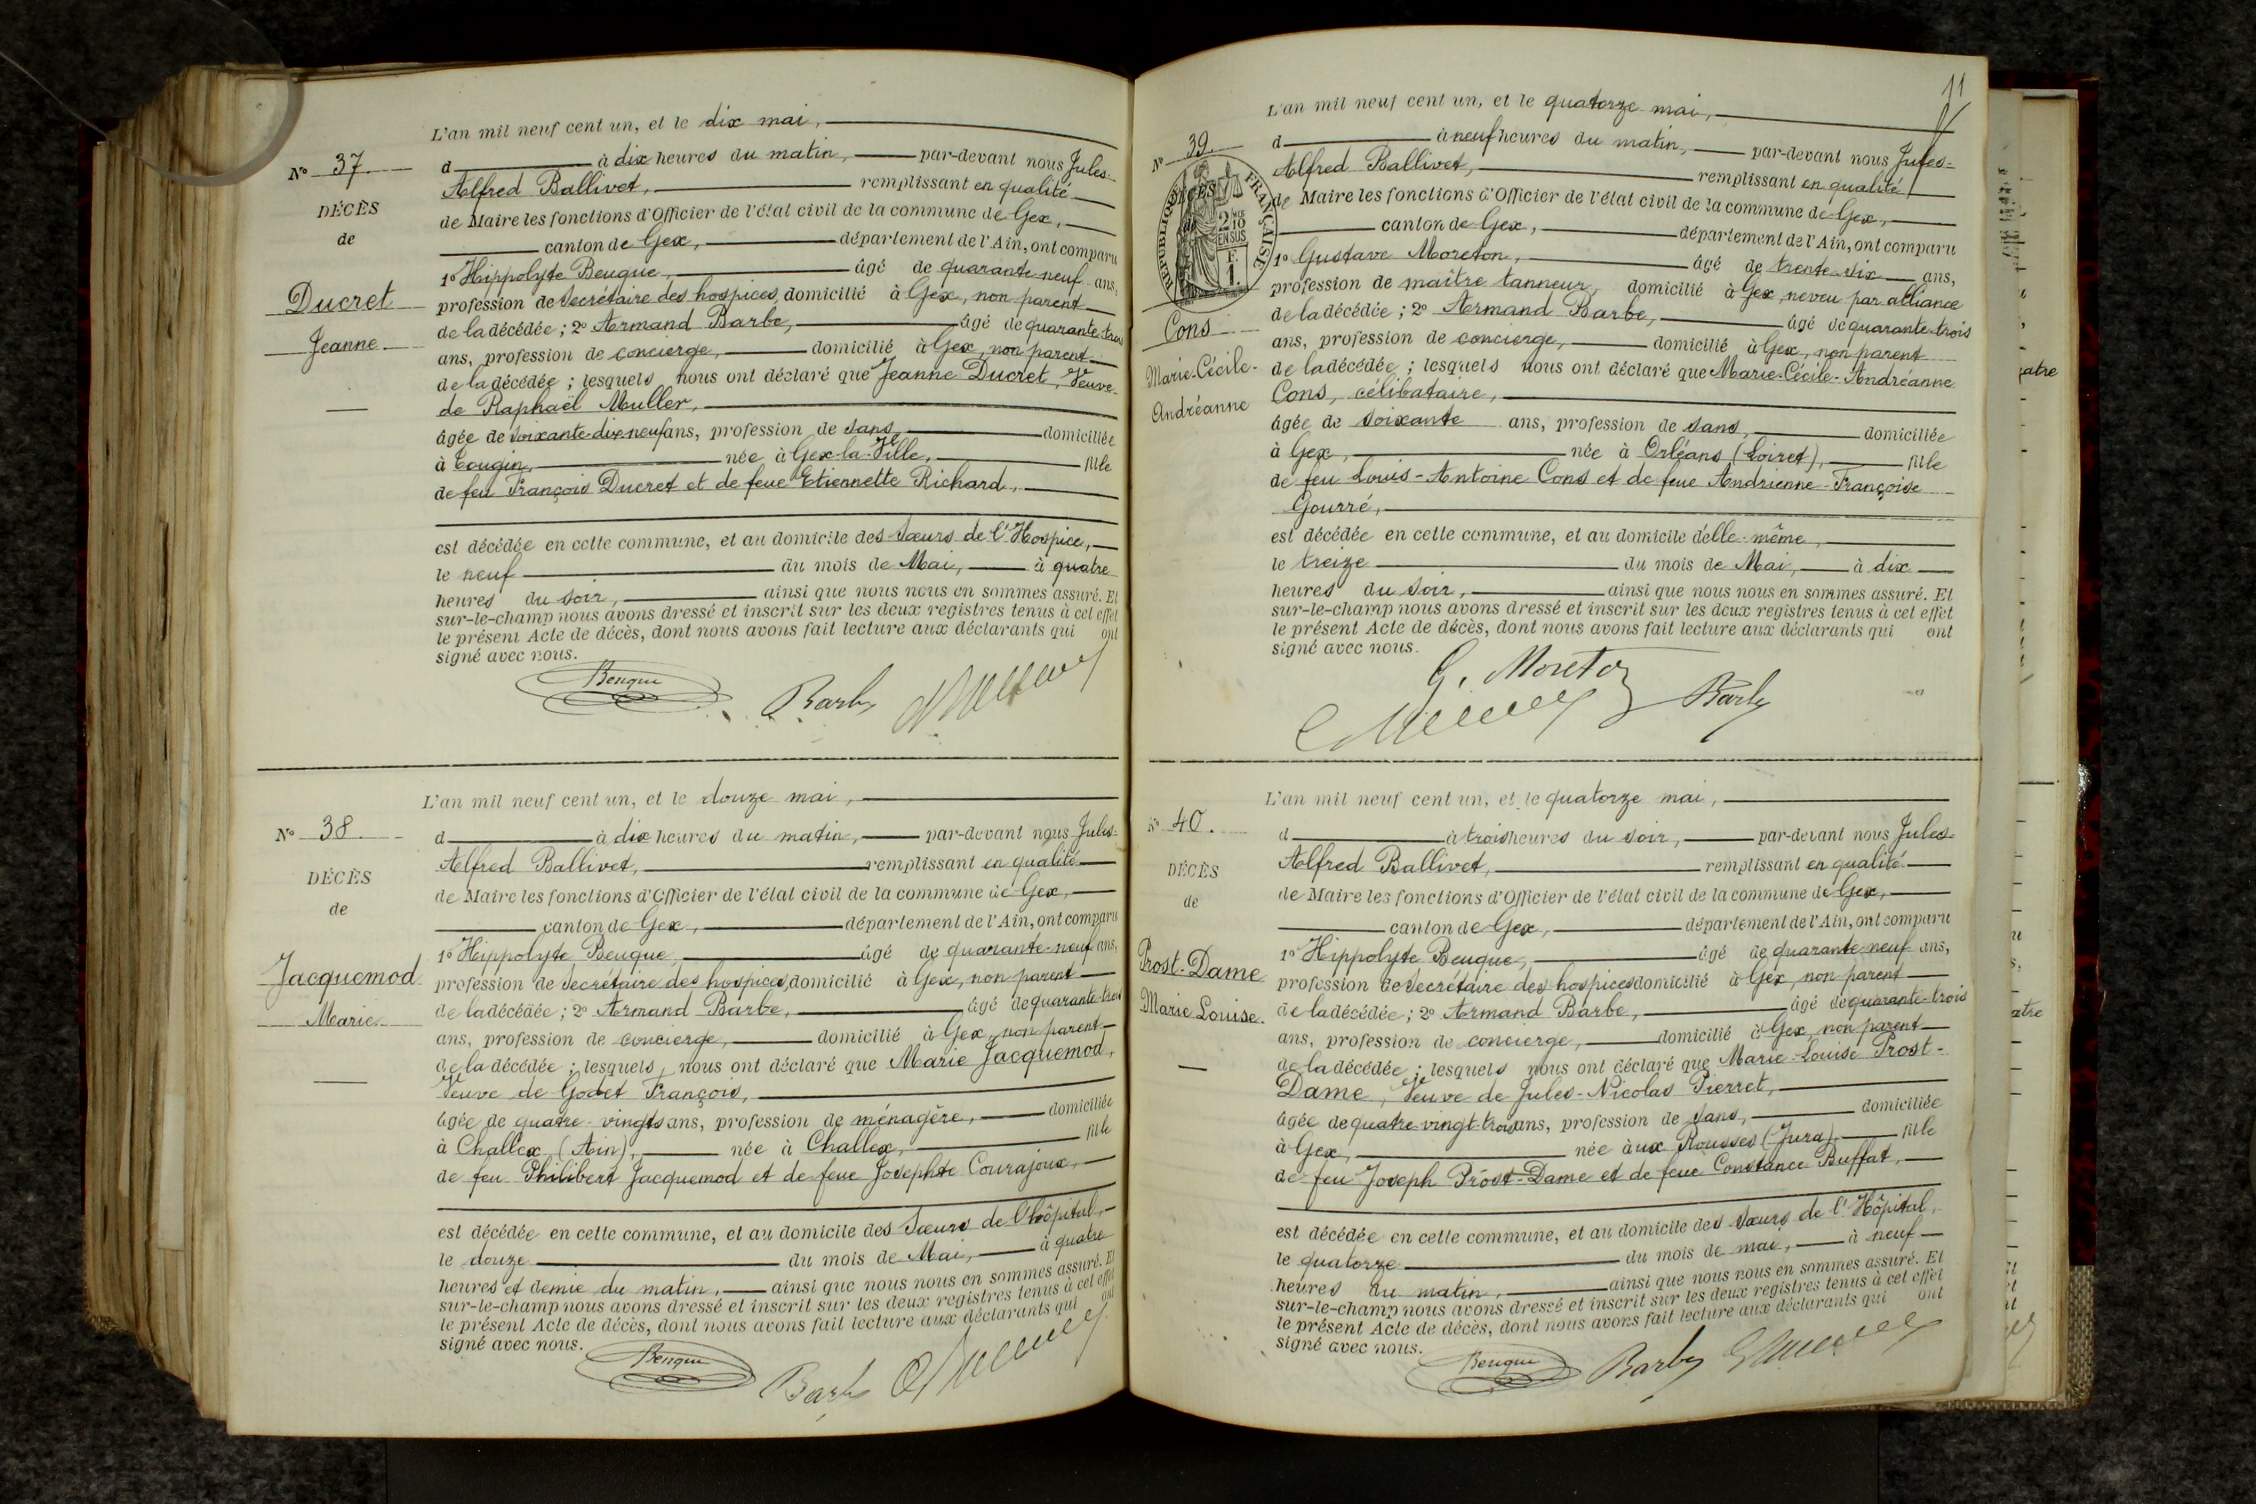 L'an mil neuf cent un, et le dix mai,
No 37.
d à dix heures du matin, par-devant nous Jules-
Alfred Ballivet, remplissant en qualité
DÉCÈS
de
de Maire les fonctions d'Officier de l'état civil de la commune de Gex,
canton de Gex, département de l'Ain, ont comparu
1o Hippolyte Beuque, âgé de quarante-neuf ans,
Ducret
Jeanne
profession de Secrétaire des hospices, domicilié à Gex, non parent
de la décédée ; 2o Armand Barbe, âgé de quarante-trois
ans, profession de concierge, domicilié à Gex, non parent
de la décédée ; lesquels nous ont déclaré que Jeanne Ducret, Veuve
de Raphaël Muller,
âgée de soixante-dix-neuf ans, profession de sans, domiciliée
à Tougin, née à Gex-la-Ville, fille
de feu François Ducret et de feue Etiennette Richard,
est décédée en cette commune, et au domicile des Sœurs de l'Hospice,
le neuf du mois de Mai, à quatre
heures du soir, ainsi que nous nous en sommes assuré. Et
sur-le-champ nous avons dressé et inscrit sur les deux registres tenus à cet effet
le présent Acte de décès, dont nous avons fait lecture aux déclarants qui ont
signé avec nous.
Beuque Barbe
L'an mil neuf cent un, et le douze mai,
No 38.
d à dix heures du matin, par-devant nous Jules-
Alfred Ballivet, remplissant en qualité
DÉCÈS
de
de Maire les fonctions d'Officier de l'état civil de la commune de Gex,
canton de Gex, département de l'Ain, ont comparu
1o Hippolyte Beuque, âgé de quarante-neuf ans,
Jacquemod
Marie
profession de Secrétaire des hospices, domicilié à Gex, non parent
de la décédée ; 2o Armand Barbe, âgé de quarante-trois
ans, profession de concierge, domicilié à Gex, non parent
de la décédée ; lesquels nous ont déclaré que Marie Jacquemod,
Veuve de Godet François,
âgée de quatre-vingts ans, profession de ménagère, domiciliée
à Challex, (Ain), née à Challex, fille
de feu Philibert Jacquemod et de feue Josephte Courajoux,
est décédée en cette commune, et au domicile des Sœurs de l'hôpital,
le douze du mois de Mai, à quatre
heures et demie du matin, ainsi que nous nous en sommes assuré. Et
sur-le-champ nous avons dressé et inscrit sur les deux registres tenus à cet effet
le présent Acte de décès, dont nous avons fait lecture aux déclarants qui ont
signé avec nous.
Beuque Barbe
11
L'an mil neuf cent un, et le quatorze mai,
No 39.
d à neuf heures du matin, par-devant nous Jules-
Alfred Ballivet, remplissant en qualité
DÉCÈS
de
RÉPUBLIQUE FRANÇAISE
2/10 EN SUS
F. 1.
de Maire les fonctions d'Officier de l'état civil de la commune de Gex,
canton de Gex, département de l'Ain, ont comparu
1o Gustave Moreton, âgé de trente-six ans,
Cons
Marie-Cécile-
Andréanne
profession de maître tanneur, domicilié à Gex, neveu par alliance
de la décédée ; 2o Armand Barbe, âgé de quarante-trois
ans, profession de concierge, domicilié à Gex, non parent
de la décédée ; lesquels nous ont déclaré que Marie-Cécile-Andréanne
Cons, célibataire,
âgée de soixante ans, profession de sans, domiciliée
à Gex, née à Orléans (Loiret), fille
de feu Louis-Antoine Cons et de feue Andrienne-Françoise
Gourré,
est décédée en cette commune, et au domicile d'elle-même,
le treize du mois de Mai, à dix
heures du soir, ainsi que nous nous en sommes assuré. Et
sur-le-champ nous avons dressé et inscrit sur les deux registres tenus à cet effet
le présent Acte de décès, dont nous avons fait lecture aux déclarants qui ont
signé avec nous.
G. Moreton
Barbe
L'an mil neuf cent un, et le quatorze mai,
No 40.
d à trois heures du soir, par-devant nous Jules-
Alfred Ballivet, remplissant en qualité
DÉCÈS
de
de Maire les fonctions d'Officier de l'état civil de la commune de Gex,
canton de Gex, département de l'Ain, ont comparu
1o Hippolyte Beuque, âgé de quarante-neuf ans,
Prost-Dame
Marie Louise.
profession de Secrétaire des hospices domicilié à Gex, non parent
de la décédée ; 2o Armand Barbe, âgé de quarante-trois
ans, profession de concierge, domicilié à Gex, non parent
de la décédée ; lesquels nous ont déclaré que Marie-Louise Prost-
Dame, Veuve de Jules-Nicolas Pierret,
âgée de quatre-vingt-trois ans, profession de sans, domiciliée
à Gex, née aux Rousses (Jura), fille
de feu Joseph Prost-Dame et de feue Constance Buffat,
est décédée en cette commune, et au domicile des Sœurs de l'Hôpital,
le quatorze du mois de mai, à neuf
heures du matin, ainsi que nous nous en sommes assuré. Et
sur-le-champ nous avons dressé et inscrit sur les deux registres tenus à cet effet
le présent Acte de décès, dont nous avons fait lecture aux déclarants qui ont
signé avec nous.
Beuque Barbe